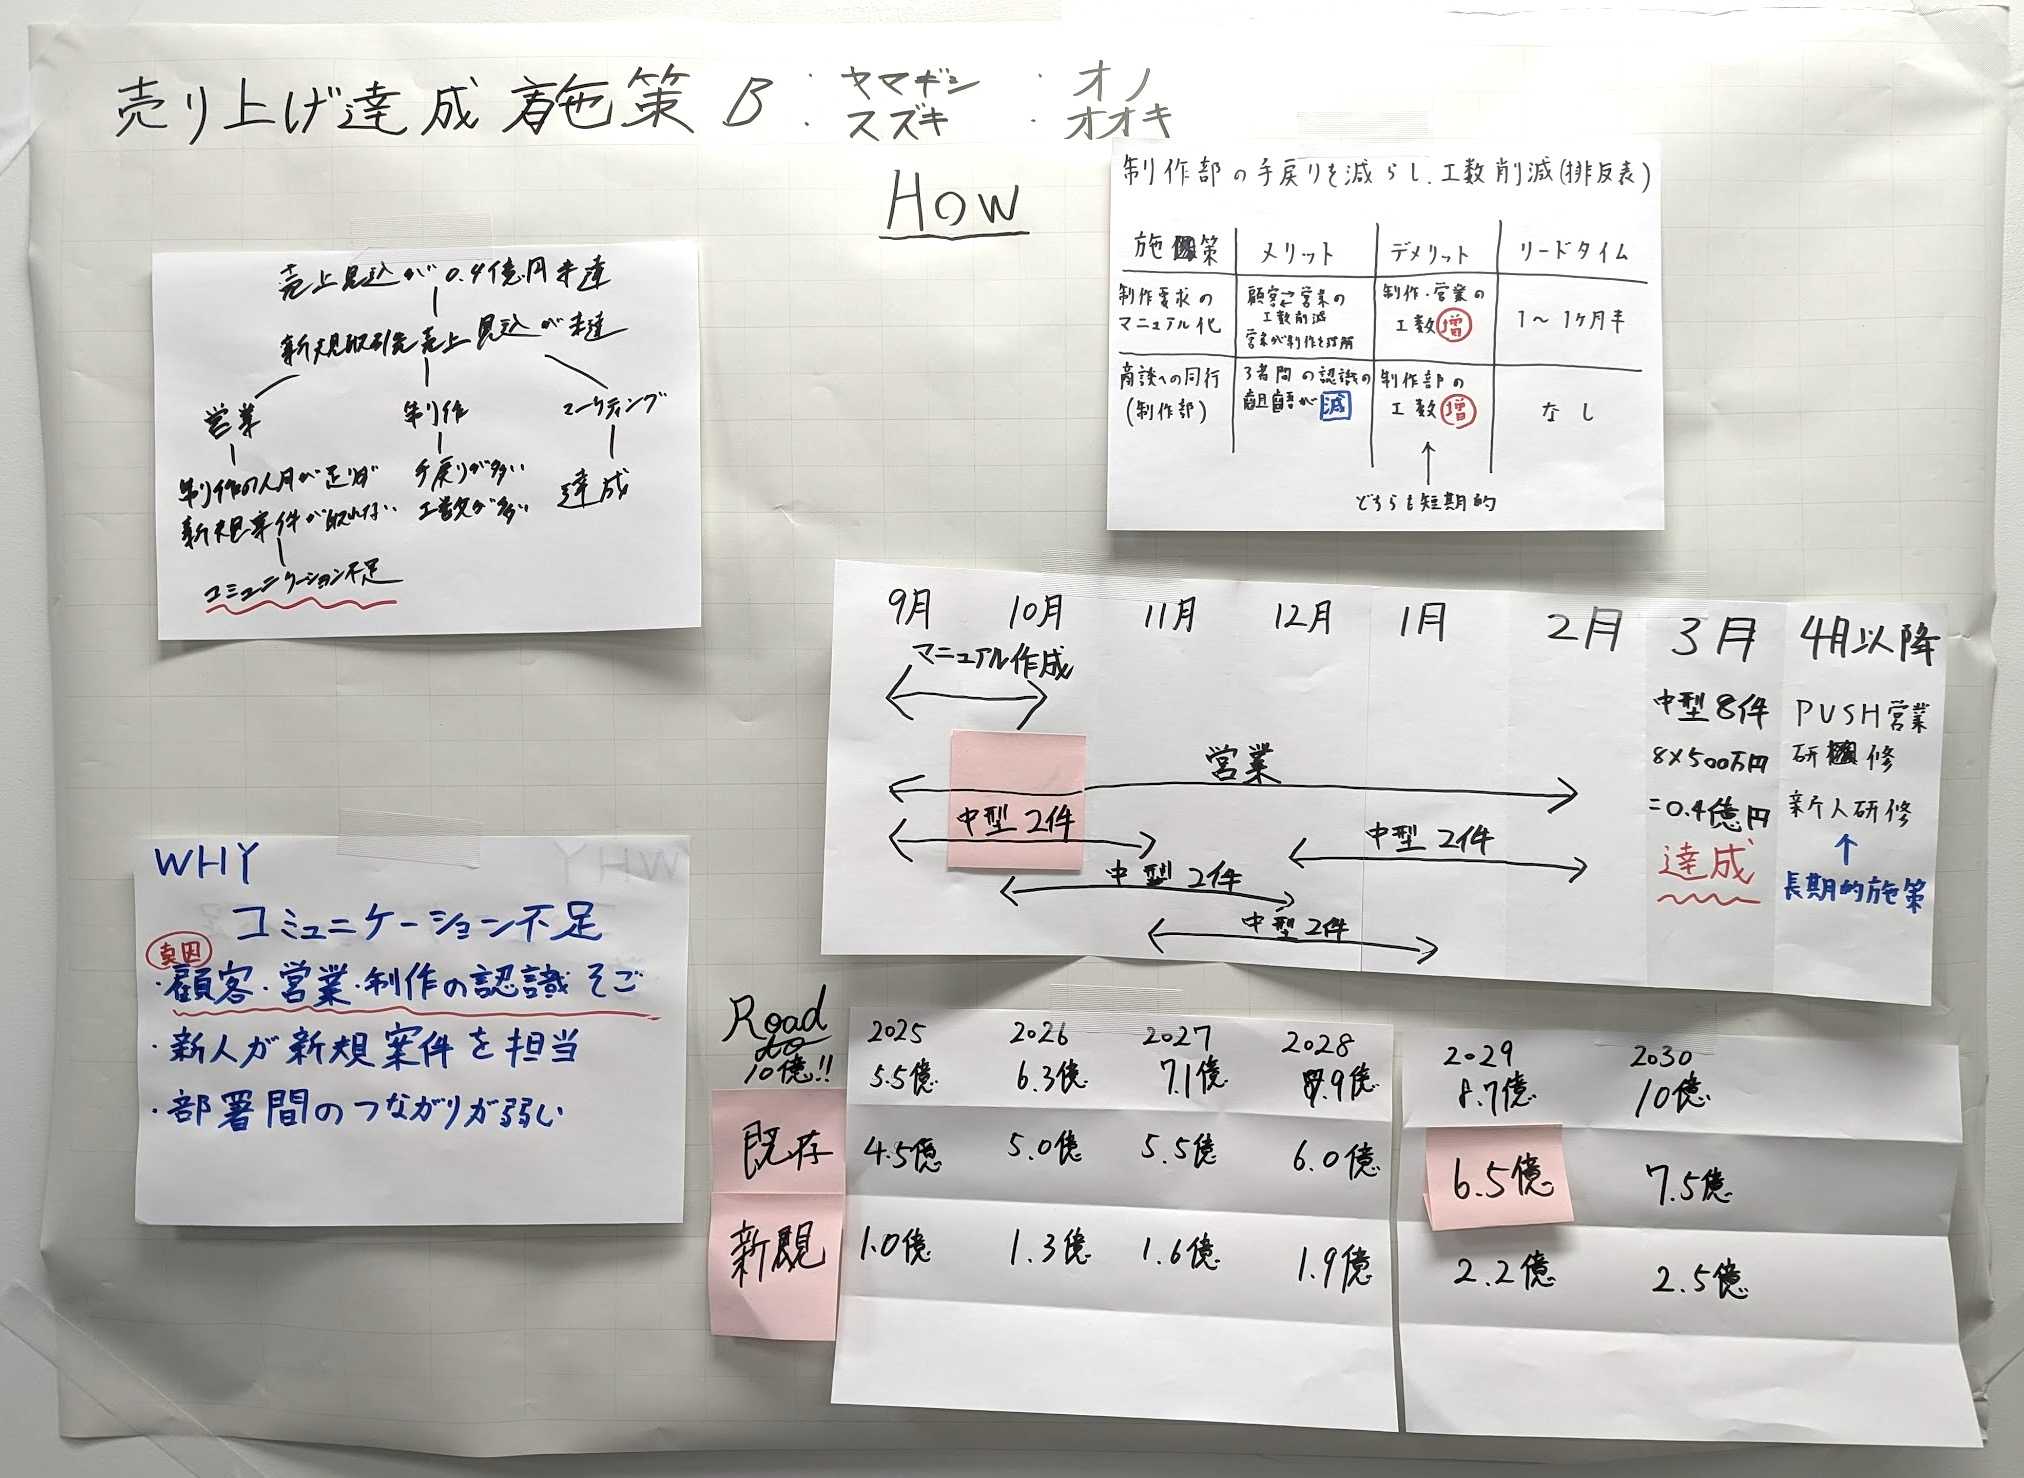 売り上げ達成施策 B : ヤマギシ ・ オノ
: スズキ ・ オオキ
How
売上見込が0.4億円未達
新規取引先売上見込が未達
営業
制作の人月が足りず
新規案件が取れない
コミュニケーション不足
制作
手戻りが多い
工数が多い
マーケティング
達成
制作部の手戻りを減らし、工数削減(排反表)
施策 メリット デメリット リードタイム
制作要求の
マニュアル化
顧客⇄営業の
工数削減
営業が制作を理解
制作・営業の
工数 増
1〜1ヶ月半
商談への同行
(制作部)
3者間の認識の
齟齬が 減
制作部の
工数 増
なし
↑
どちらも短期的
9月 10月 11月 12月 1月 2月 3月 4月以降
マニュアル作成
営業
中型 2件
中型 2件
中型 2件
中型 2件
中型 8件
8×500万円
=0.4億円
達成
PUSH営業
研修
新人研修
↑
長期的施策
WHY
コミュニケーション不足
真因
・顧客・営業・制作の認識そご
・新人が新規案件を担当
・部署間のつながりが弱い
Road
to
10億!!
2025 2026 2027 2028 2029 2030
5.5億 6.3億 7.1億 7.9億 8.7億 10億
既存 4.5億 5.0億 5.5億 6.0億 6.5億 7.5億
新規 1.0億 1.3億 1.6億 1.9億 2.2億 2.5億